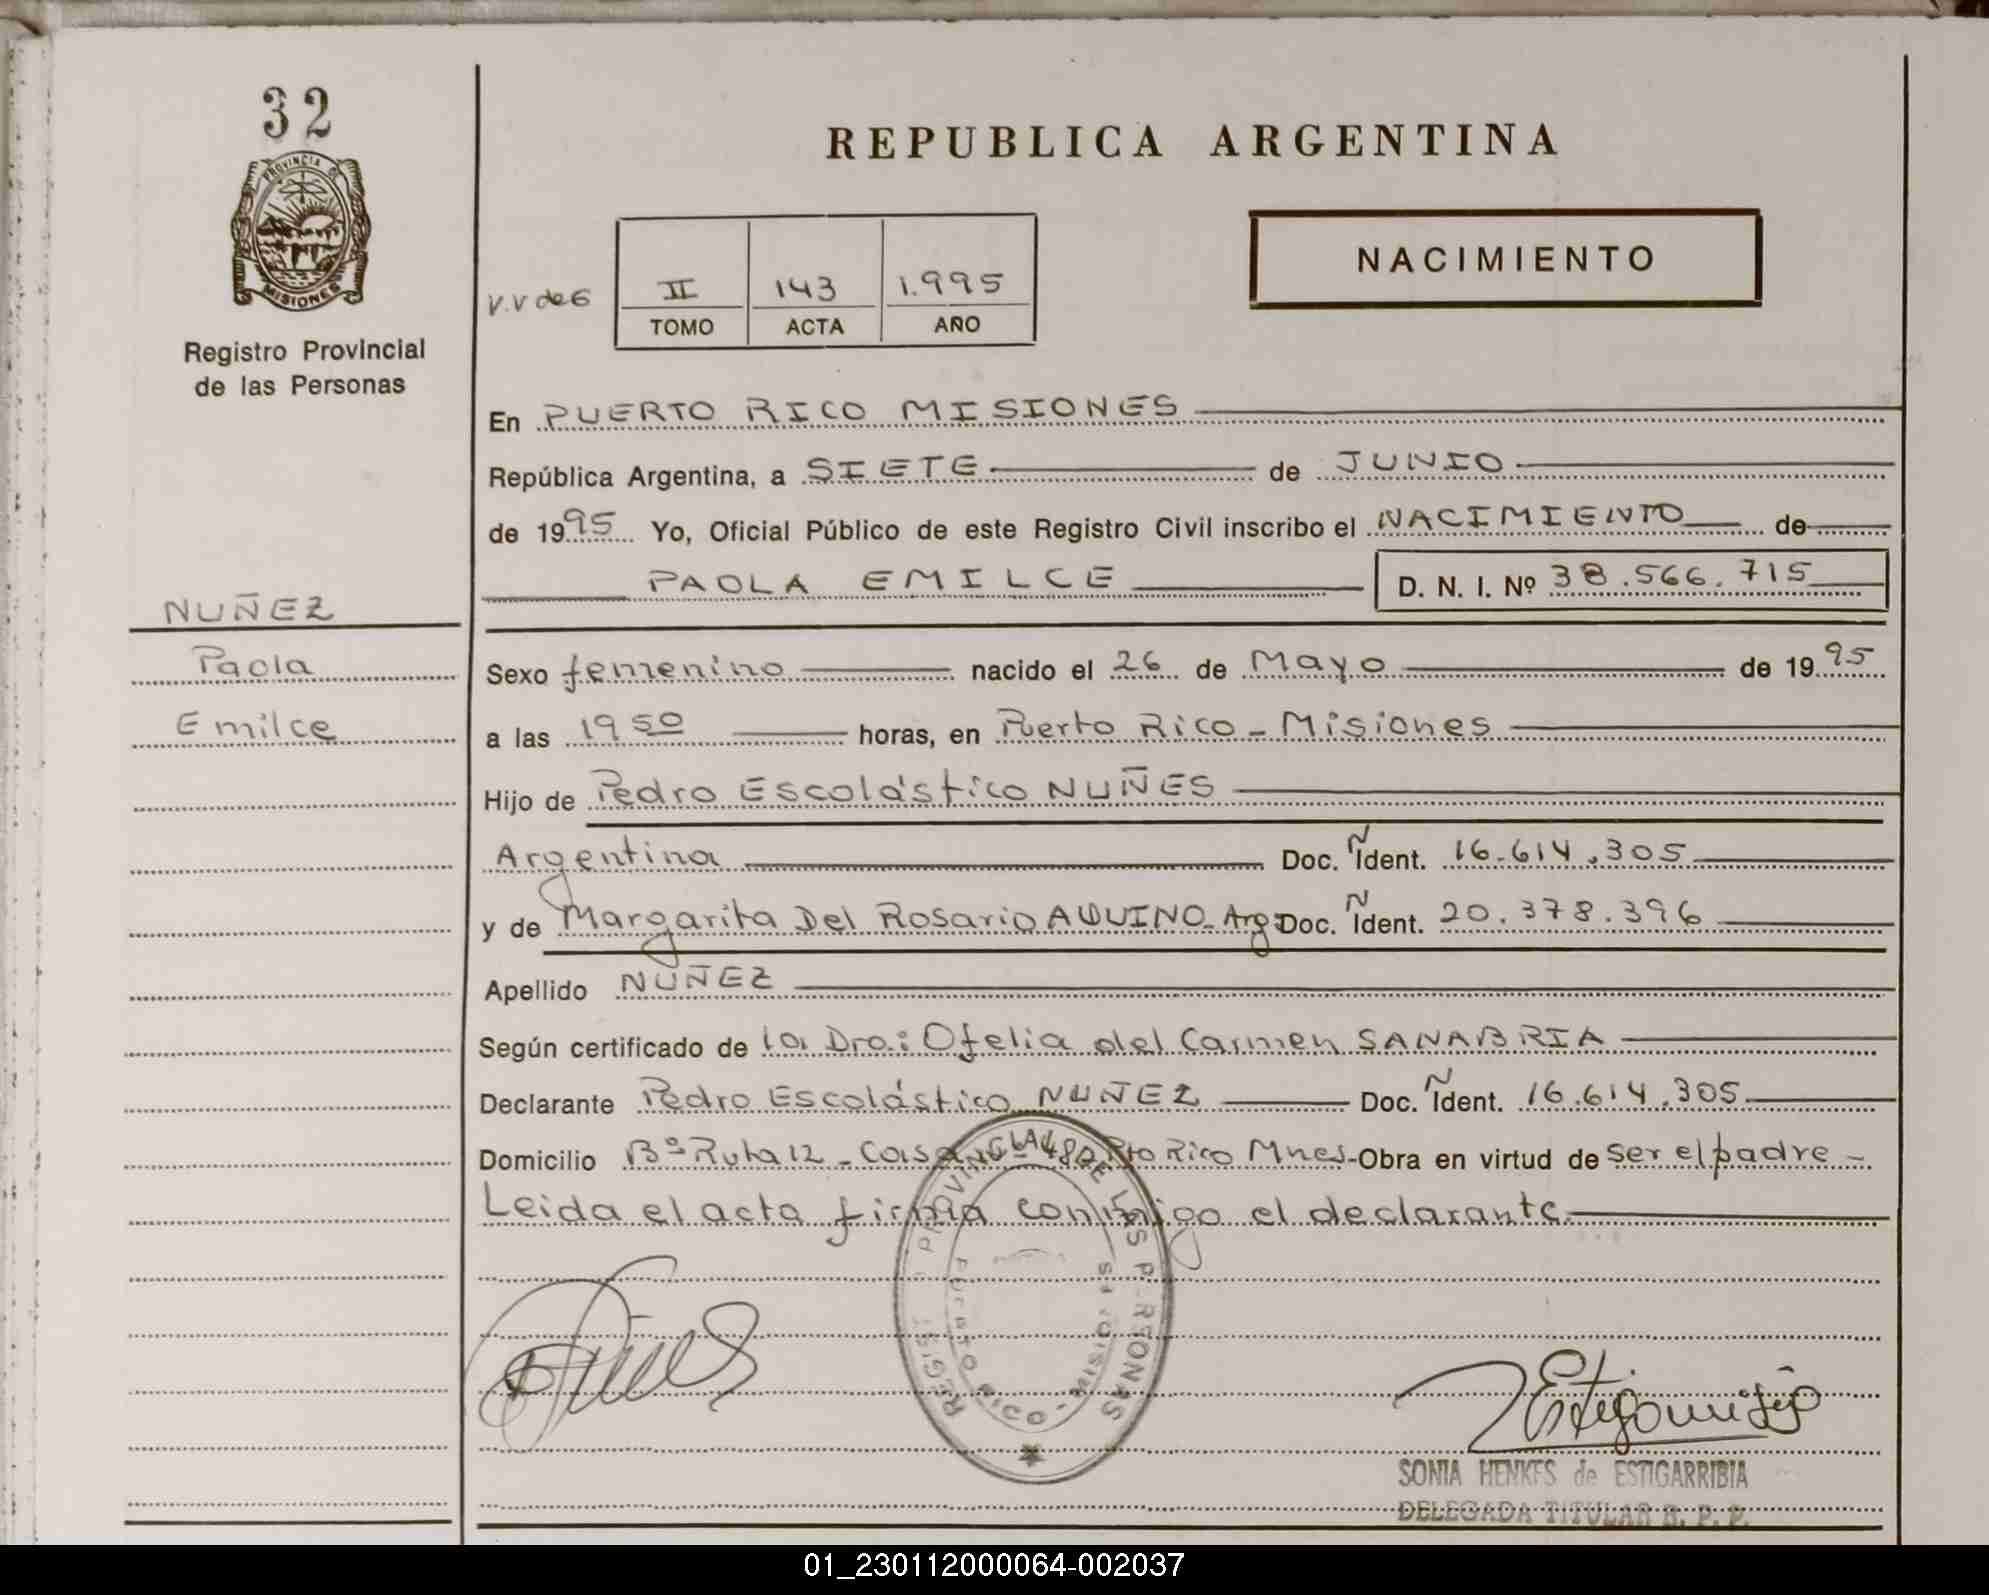 32
PROVINCIA DE
MISIONES
Registro Provincial
de las Personas
NUÑEZ
Paola
Emilce
REPUBLICA ARGENTINA
V.V de 6
II 143 1.995
TOMO ACTA AÑO
NACIMIENTO
En PUERTO RICO MISIONES
República Argentina, a SIETE de JUNIO
de 1995 Yo, Oficial Público de este Registro Civil inscribo el NACIMIENTO de
PAOLA EMILCE D. N. I. Nº 38.566.715
Sexo femenino nacido el 26 de Mayo de 1995
a las 19 50 horas, en Puerto Rico - Misiones
Hijo de Pedro Escolástico NUÑES
Argentina Doc. Ñ Ident. 16.614.305
y de Margarita Del Rosario AQUINO - Arg Doc. Ñ Ident. 20.378.396
Apellido NUÑEZ
Según certificado de la Dra: Ofelia del Carmen SANABRIA
Declarante Pedro Escolástico NUÑEZ Doc. Ñ Ident. 16.614.305
Domicilio Bº Ruta 12 - Casa 48 Pto Rico Mnes - Obra en virtud de ser el padre -
Leida el acta firma conmigo el declarante.
REGIST PROVINCIAL DE LAS PERSONAS
PUERTO RICO - MISIONES
SONIA HENKES de ESTIGARRIBIA
DELEGADA TITULAR R. P. P.
01_230112000064-002037